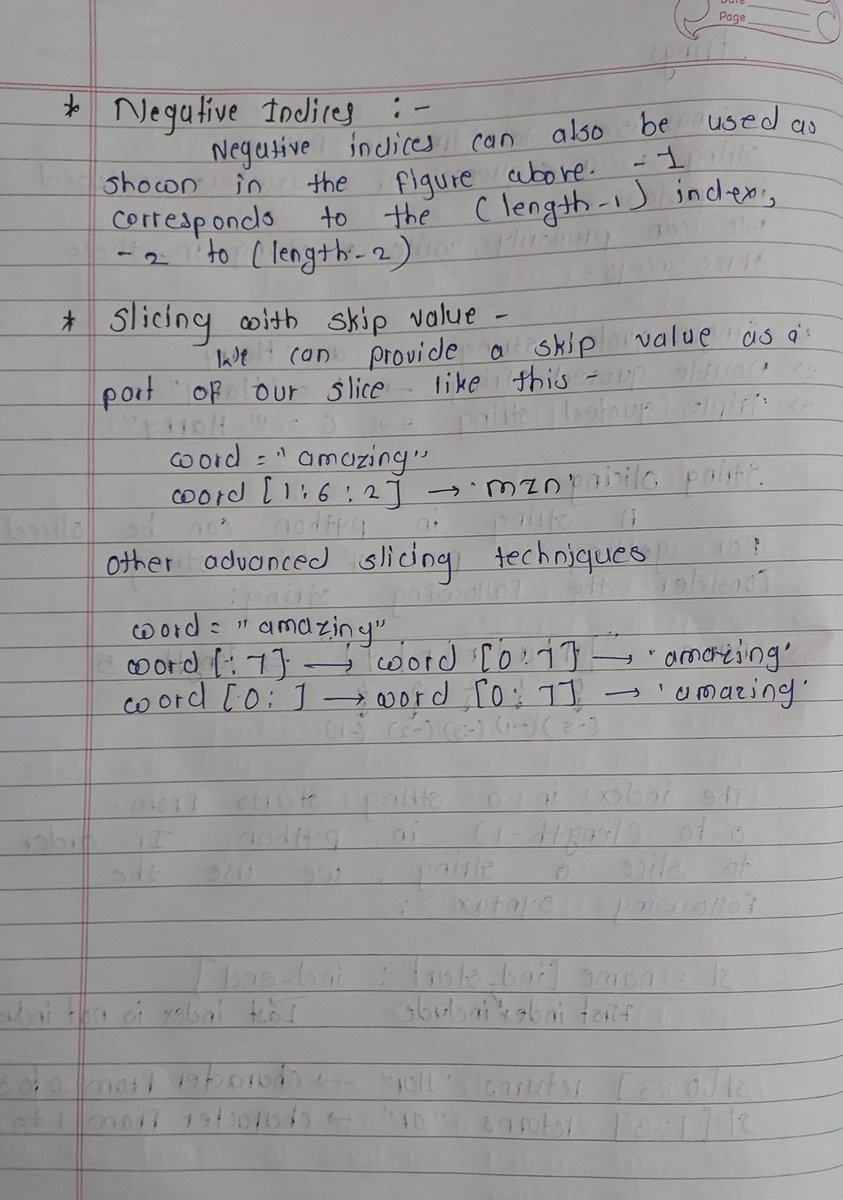 Page
* Negative Indices :-
Negative indices can also be used as
shown in the figure above. -1
corresponds to the (length-1) index,
-2 to (length-2)
* Slicing with skip value -
We can provide a skip value as a
part of our slice like this -
word = "amazing"
word [1:6:2] → 'mzn'
other advanced slicing techniques
word = "amazing"
word [:7] → word [0:7] → 'amazing'
word [0:] → word [0:7] → 'amazing'